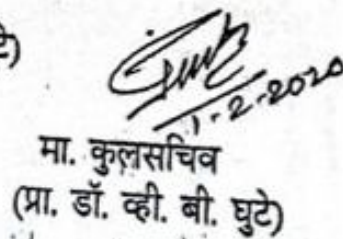 टे)
1-2-2020
मा. कुलसचिव
(प्रा. डॉ. व्ही. बी. घुटे)